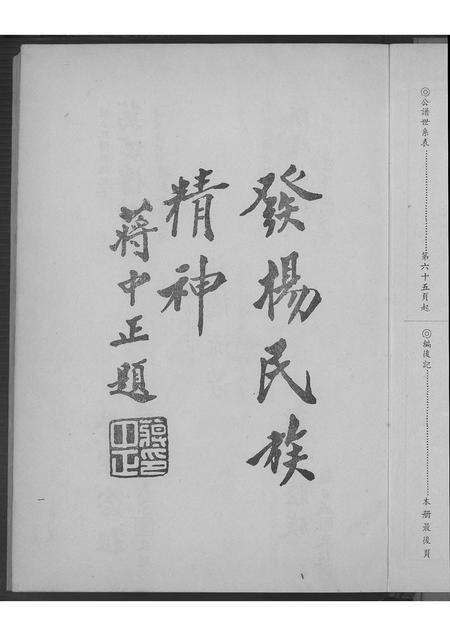 ◎公譜世系表……………………第六十五頁起
◎編後記……………………本冊最後頁
發揚民族
精神
蔣中正題
蔣中正印
一